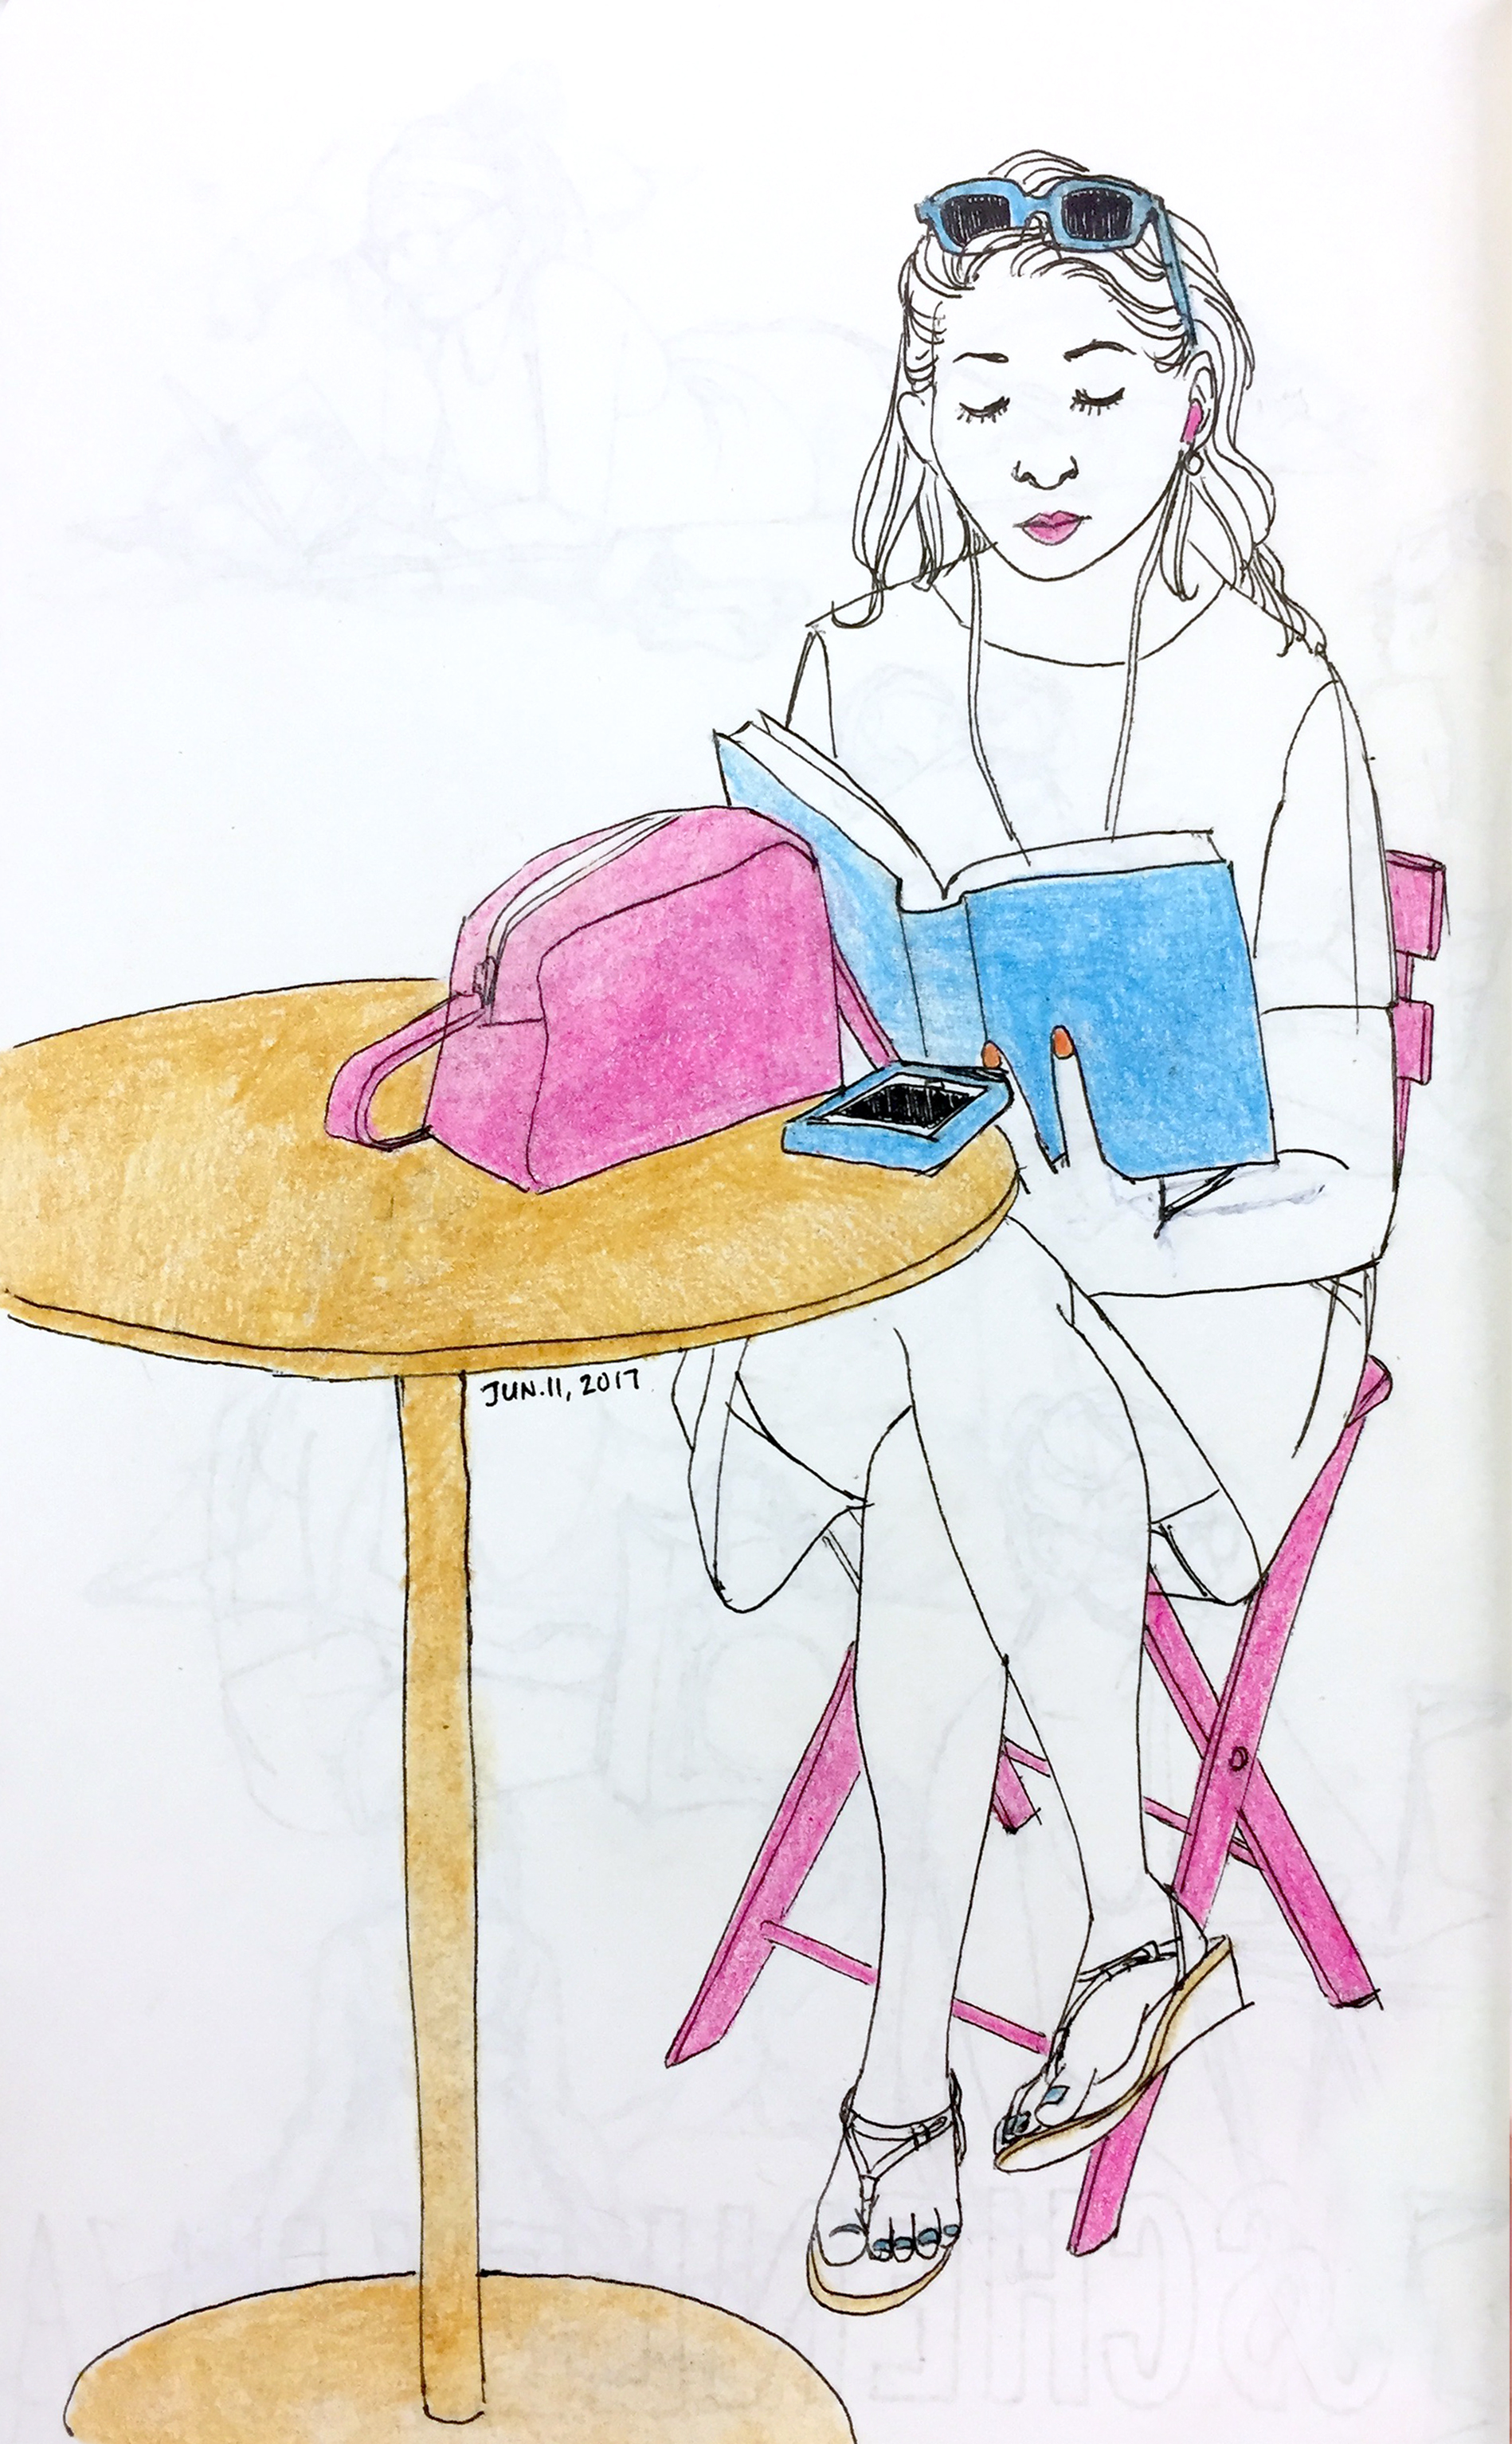 JUN.11, 2017